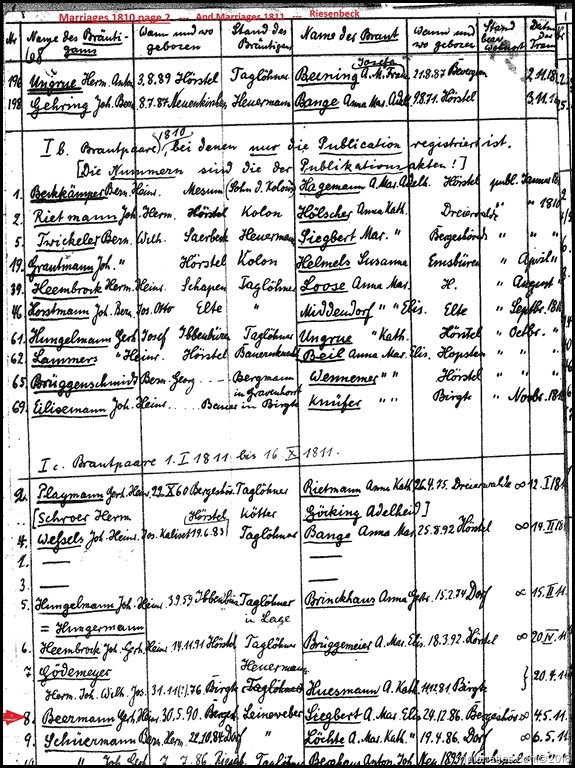 Marriages 1810 page 2 --- And Marriages 1811 --- Riesenbeck
Nr Name des Bräuti- gams Wann und wo geboren Stand des Bräutigams Name der Braut Wann und wo geboren Stand bezw. Wohnort
196 Ungrue Herm. Anton 3.8.89 Hörstel Taglöhner Beuning A.M. Josefa 21.8.87 Bevergern 2.11.18
198 Gehring Joh. Bern. 8.7.87 Neuenkirchen Heuermann Bange Anna Mar. Adelh. 9.8.71. Hörstel 3.11.
I b. Brautpaare 1810, bei denen nur die Publication registriert ist.
[Die Nummern sind die der Publikationsakten!]
1. Beckkämper Bern. Heinr. Mesum (Sohn d. Kolons) Hagemann A. Mar. Adelh. Hörstel publ. Januar
2. Rietmann Joh. Herm. Hörstel Kolon Hölscher Anna Kath. Dreierwalde " " 1810
5. Twickeler Bern. Wilh. Saerbeck Heuermann Siegbert Mar. " Bergeshövede " "
19. Grautmann Joh. " Hörstel Kolon Helmels Susanna Emsbüren " April
39. Heembrock Herm. Heinr. Schapen Taglöhner Loose Anna Mar. H. " August
46. Horstmann Joh. Bern. Jos. Otto Elte " Middendorf " " Elis. Elte " Septbr. 181
61. Hungelmann Gerh. Josef Ibbenbüren Taglöhner Ungrue " Kath. Hörstel " Octbr. "
62. Lammers " Heinr. Hörstel Bauernknecht Beil Anna Mar. Elis. Hopsten " "
65. Brüggenschmidt Bern. Georg ---- Bergmann in Gravenhorst Wennemer " " Hörstel " "
69. Eilisemann Joh. Heinr. .... Bauer in Birgte Knüfer " " Birgte " Novbr. 181
I c. Brautpaare 1.I 1811 bis 16.X 1811.
2a. Plagmann Gerh. Heinr. 22.X 60 Bergeshöv. Taglöhner Rietmann Anna Kath. 26.4.75. Dreierwalde ∞ 12.I 181
[Schroer Herm. (Hörstel) Kötter Göcking Adelheid]
4. Wessels Joh. Heinr. Jos. Kalixt 19.6.83 Taglöhner Bange Anna Mar. 25.8.92 Hörstel ∞ 14.II 18
1. —— ——
3. —— ——
5. Hungelmann Joh. Heinr. 3.9.59 Ibbenbüren Taglöhner in Lage Brinckhaus Anna Gertr. 15.2.74 Dorf ∞ 15.II 11.
= Hungermann
6. Heembrock Joh. Gerh. Heinr. 14.11.91 Hörstel Taglöhner Brüggemeier A. Mar. Elis. 18.3.92. Hörstel ∞ 20 IV. 11
7 Gödemeyer Heuermann
Herm. Joh. Wilh. Jos. 31.11(!).76 Birgte Taglöhner Huesmann A. Kath. 11.12.81 Birgte } 20.4.1
8. Beermann Gerh. Heinr. 30.5.90. Berges. Leineweber Siegbert A. Mar. Elis. 24.12.86. Bergeshöv. ∞ 4.5.11
9. Schüermann Bern. Herm. 22.10.84 Dorf " Löchte A. Mar. Kath. " 19.4.86. Dorf ∞ 6.5.11